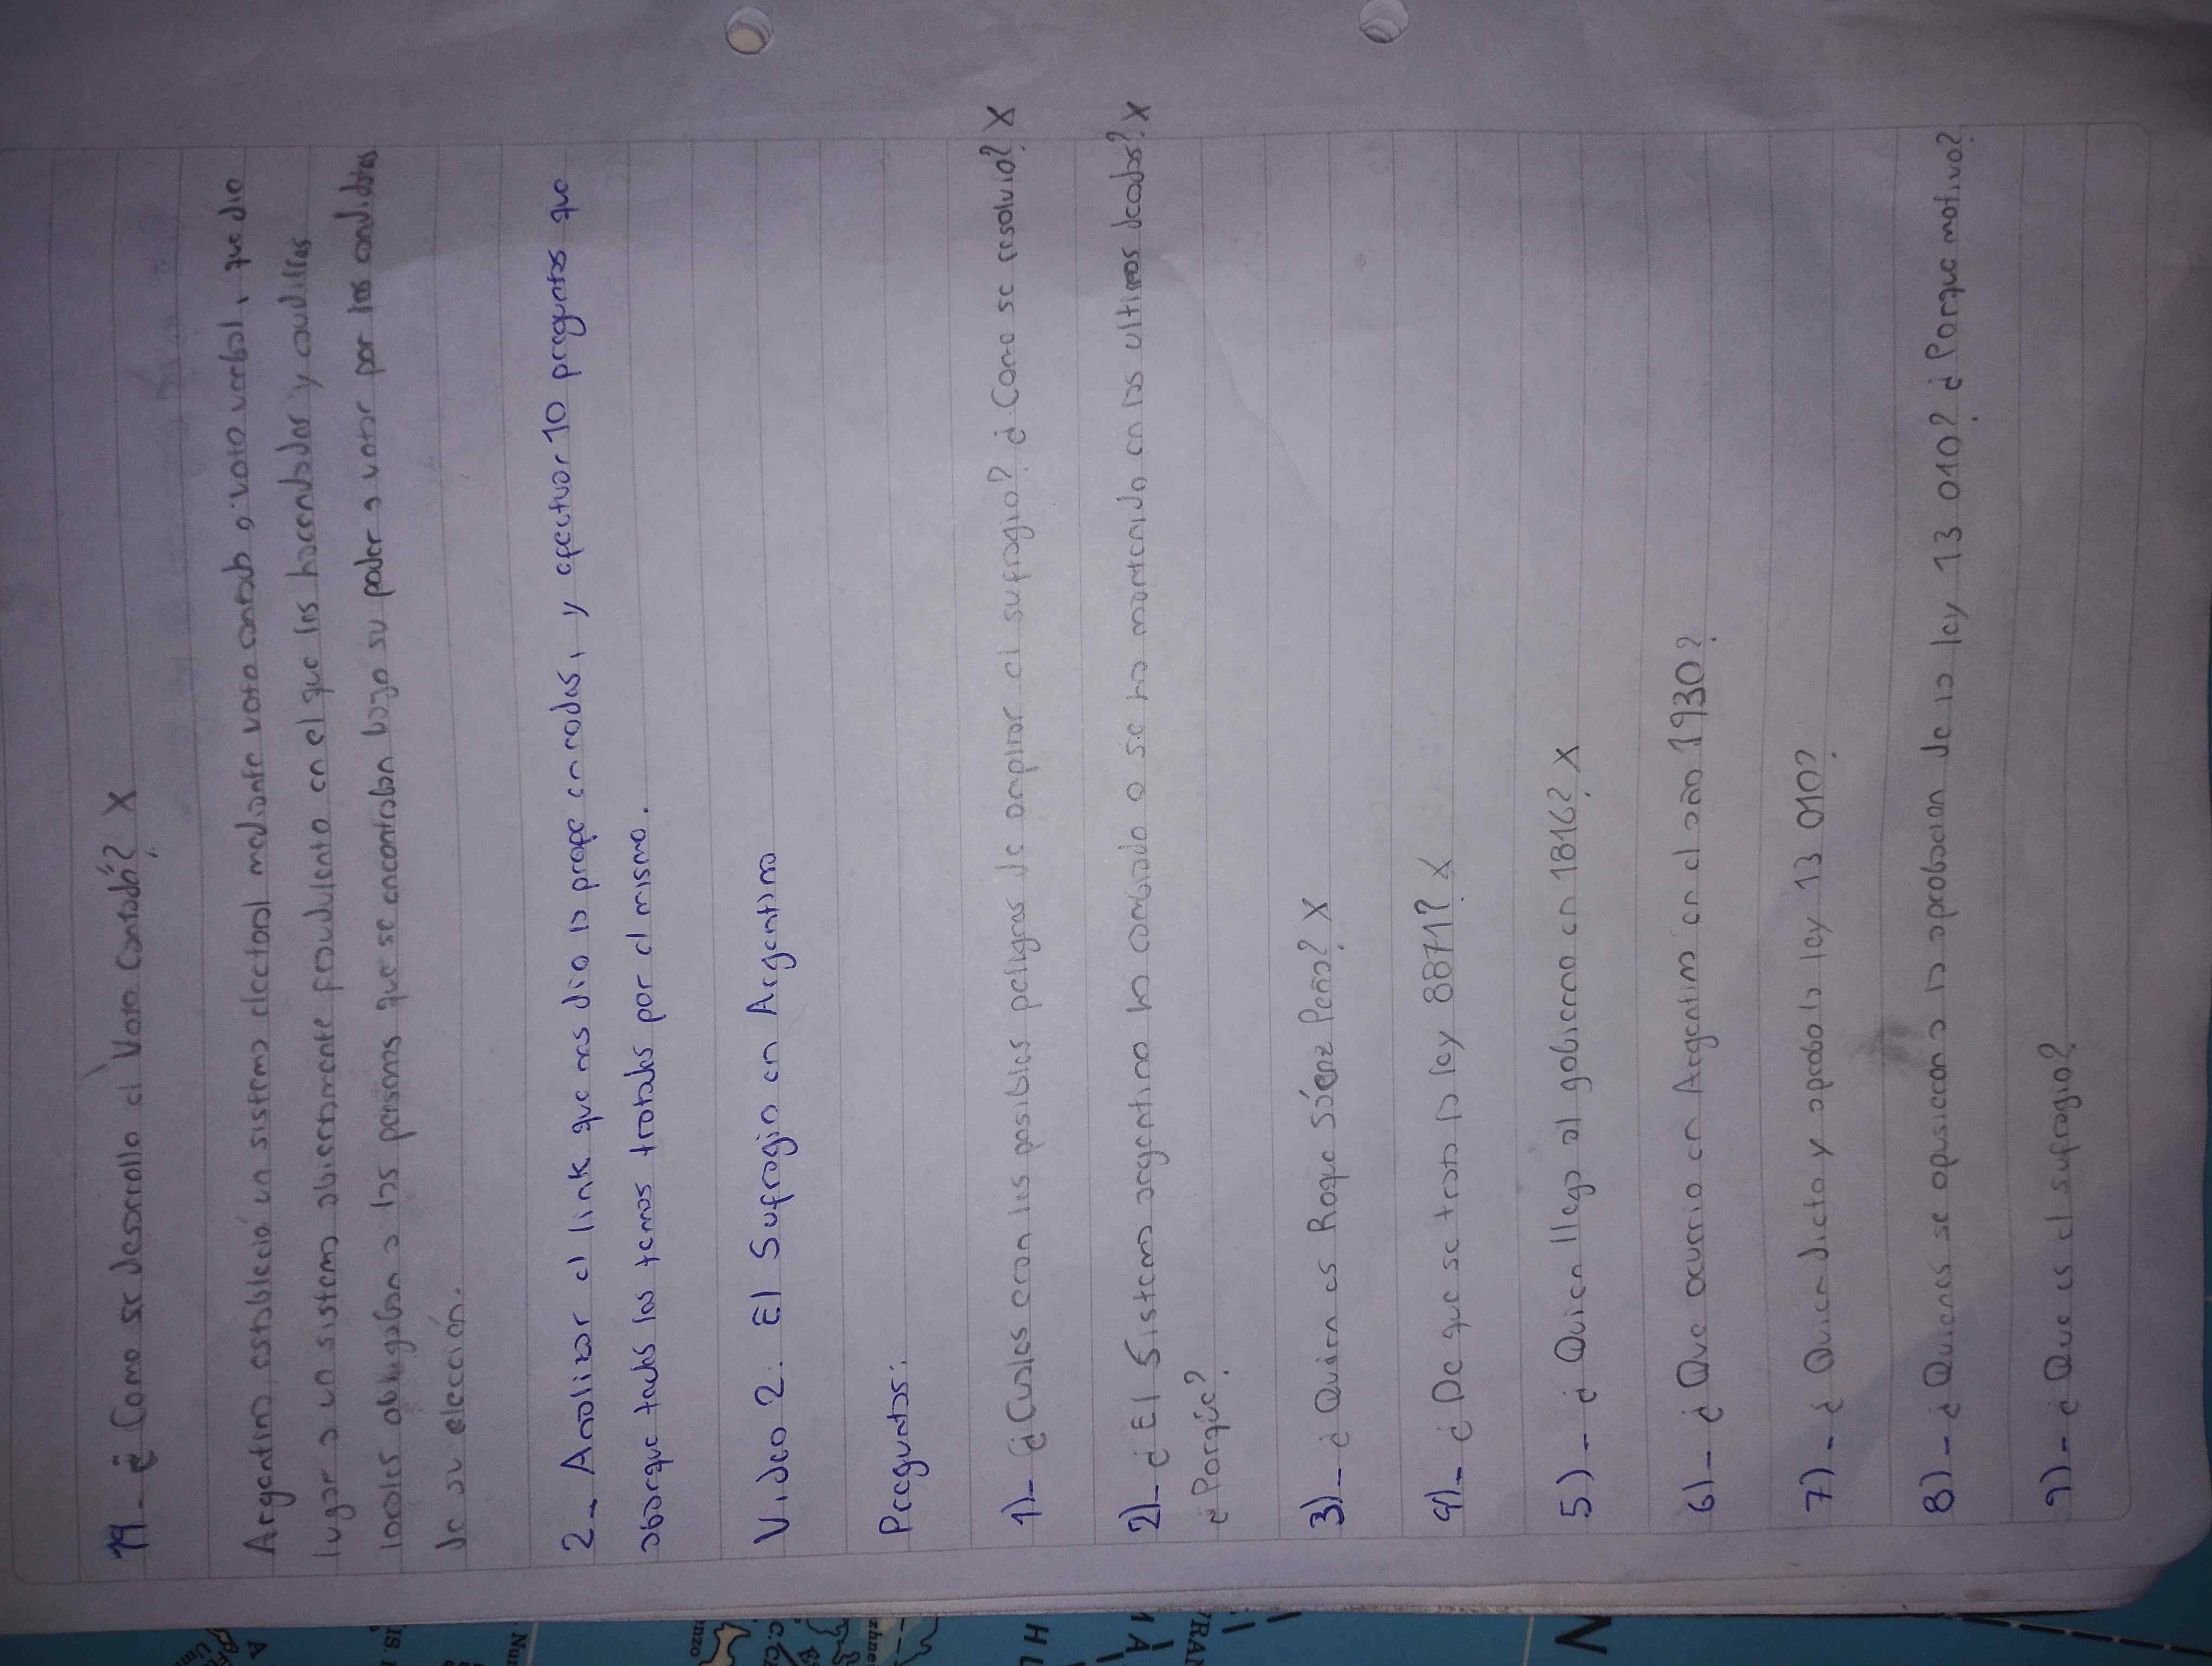 19_ ¿Como se desarrollo el Voto Cantado? X
Argentina estableció un sistema electoral mediante voto cantado o voto verbal, que dio
lugar a un sistema abiertamente fraudulento en el que los hacendados y caudillos
locales obligaban a las personas que se encontraban bajo su poder a votar por los candidatos
de su elección.
2_ Analizar el link que nos dio la profe en rodas, y efectuar 10 preguntas que
abarque todos los temas tratados por el mismo.
Video 2: El Sufragio en Argentina
Preguntas:
1)_ ¿Cuales eran los posibles peligros de ampliar el sufragio? ¿Como se resolvio? X
2)_ ¿El Sistema argentino ha cambiado o se ha mantenido en las ultimas decadas? X
¿Porqué?
3)_ ¿Quien es Roque Sáenz Peña? X
4)_ ¿De que se trata la ley 8871? X
5)_ ¿Quien llego al gobierno en 1816? X
6)_ ¿Que ocurrio en Argentina en el año 1930?
7)_ ¿Quien dicto y aprobo la ley 13 010?
8)_ ¿Quienes se opusieron a la aprobacion de la ley 13 010? ¿Porque motivo?
9)_ ¿Que es el sufragio?
H
N